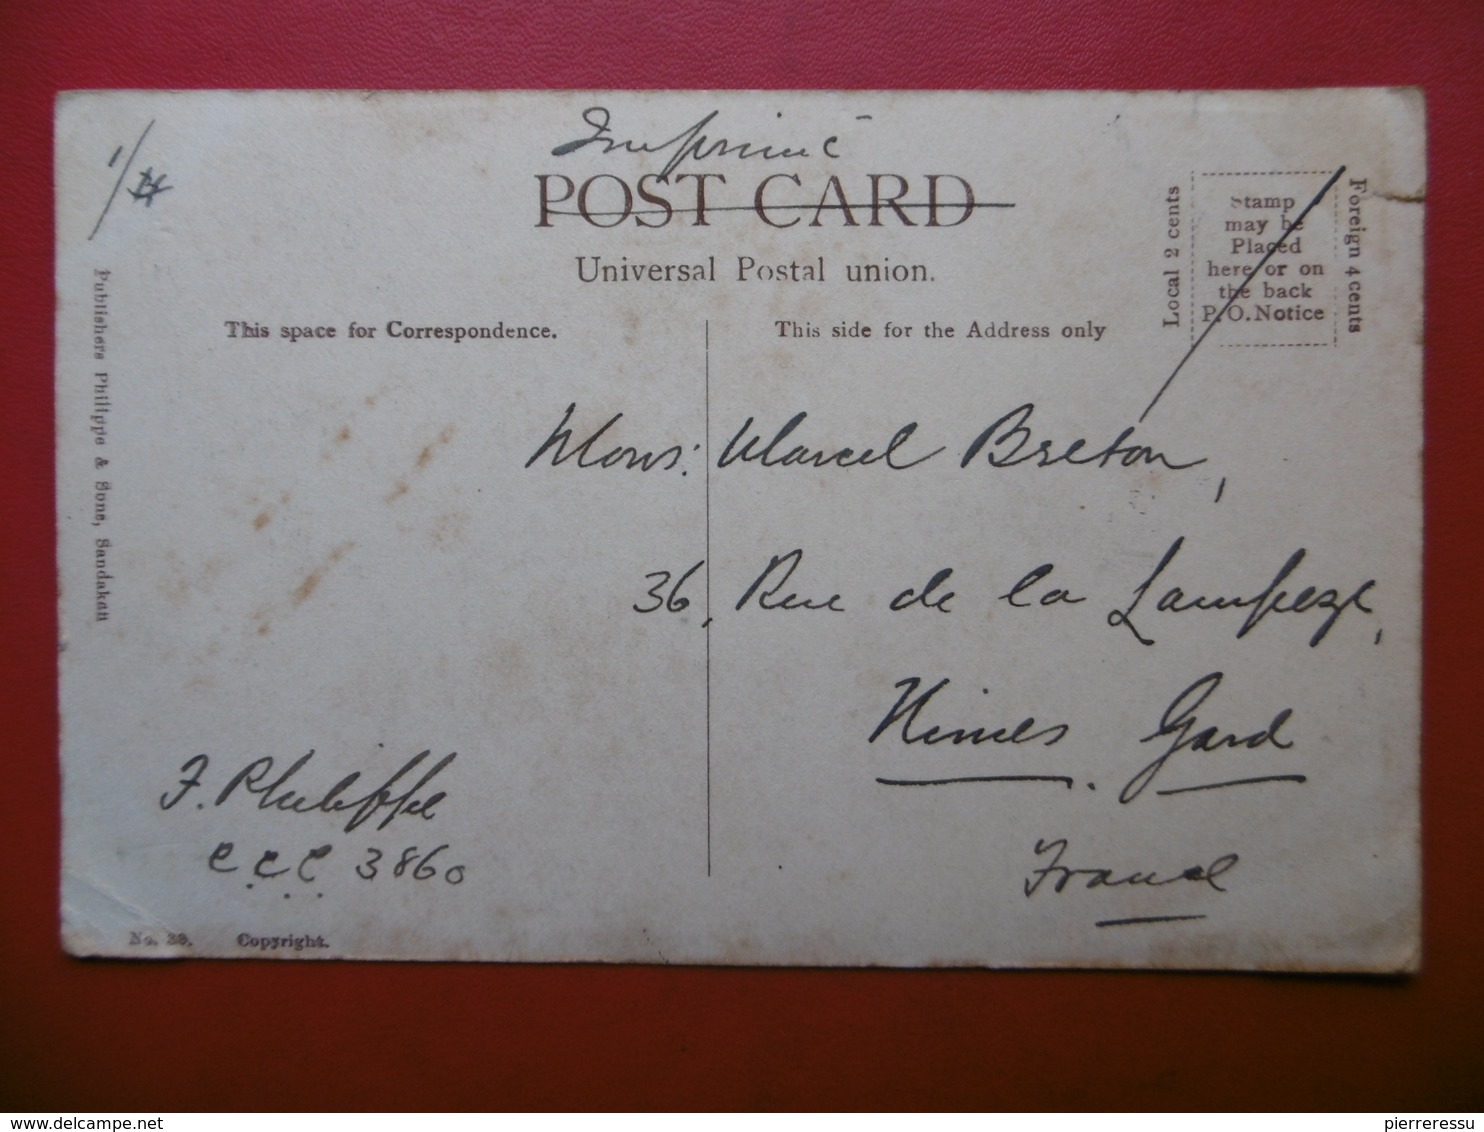 Imprimé
1/
POST CARD
Universal Postal union.
Local 2 cents
Stamp
may be
Placed
here or on
the back
P.O. Notice
Foreign 4 cents
This space for Correspondence.
This side for the Address only
Publishers Philippe & Sons, Sandakan
Mons: Marcel Breton,
36, Rue de la Lampeze,
Nimes. Gard
France
F. Philippe
C.C.C. 3860
No. 39. Copyright.
delcampe.net
pierreressu